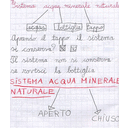 Sistema acqua minerale naturale
acqua bottiglia tappo
Aprendo il tappo il sistema
si conserva? SI NO
Il sistema non si conserva
se cambi la bottiglia
SISTEMA ACQUA MINERALE
NATURALE
APERTO CHIUSO